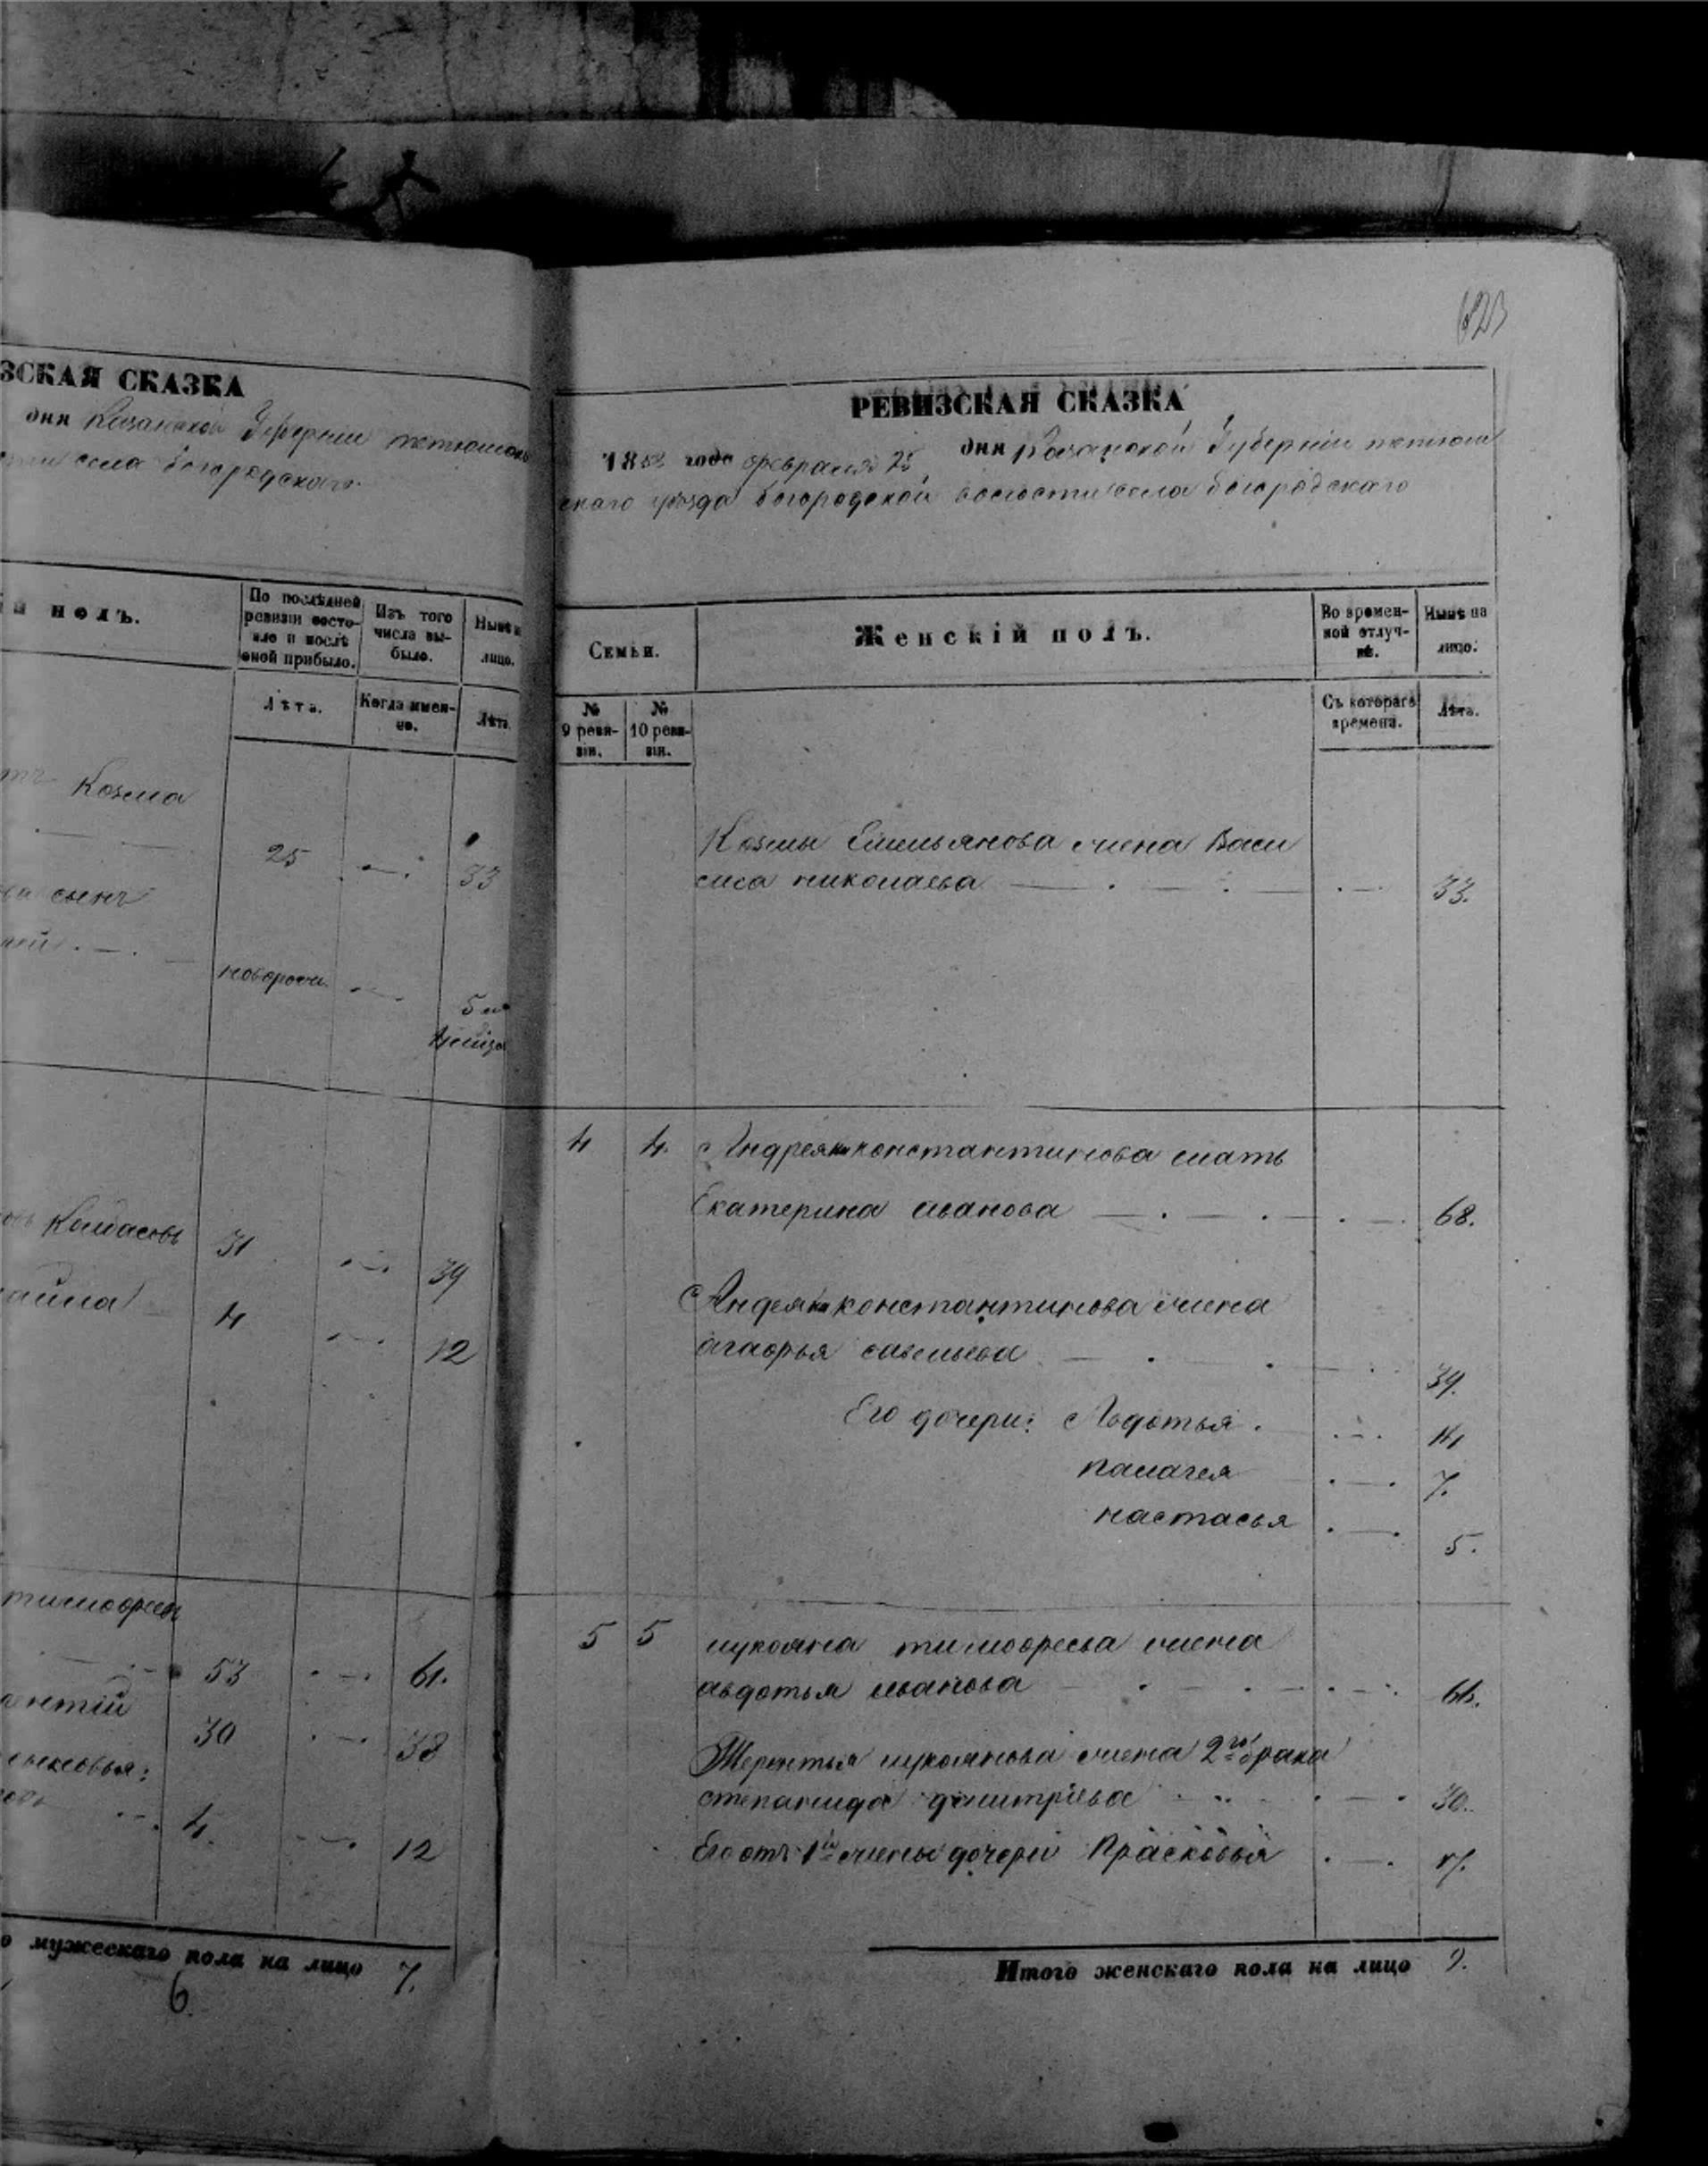 123
ЗСКАЯ СКАЗКА
дня Казанской Губерніи тетюшск
села богородскаго
й полъ.
По послѣдней ревизіи состояло и послѣ оной прибыло.
Изъ того числа выбыло.
Нынѣ н лицо.
Лѣта.
Когда именно.
Лѣта.
Козма
25 33
сынъ
новорож. 5 ме
31 39
4 12
тимофеев
53 61.
ентий
30 38
4. 12
о мужескаго пола на лицо 7.
6.
РЕВИЗСКАЯ СКАЗКА
1858 года февраля 25 дня Казанской Губерніи тетюш
скаго уѣзда богородской волости села богородскаго
Семьи.
Женскій полъ.
Во временной отлучкѣ.
Нынѣ на лицо.
№ 9 ревизіи.
№ 10 ревизіи.
Съ котораго времени.
Лѣта.
Козмы Емельянова жена Васи
лиса николаева 33.
4 4. Андреяна константинова мать
Екатерина иванова 68.
Андеяна константинова жена
агафья савельева 39.
Его дочери: Авдотья. 14
палагея 7.
настасья 5.
5 5 лукояна тимофеева жена
авдотья иванова 66.
Терентья лукоянова жена 2го брака
степанида димитріева 30.
Его отъ 1й жены дочери Прасковья
Итого женскаго пола на лицо 9.